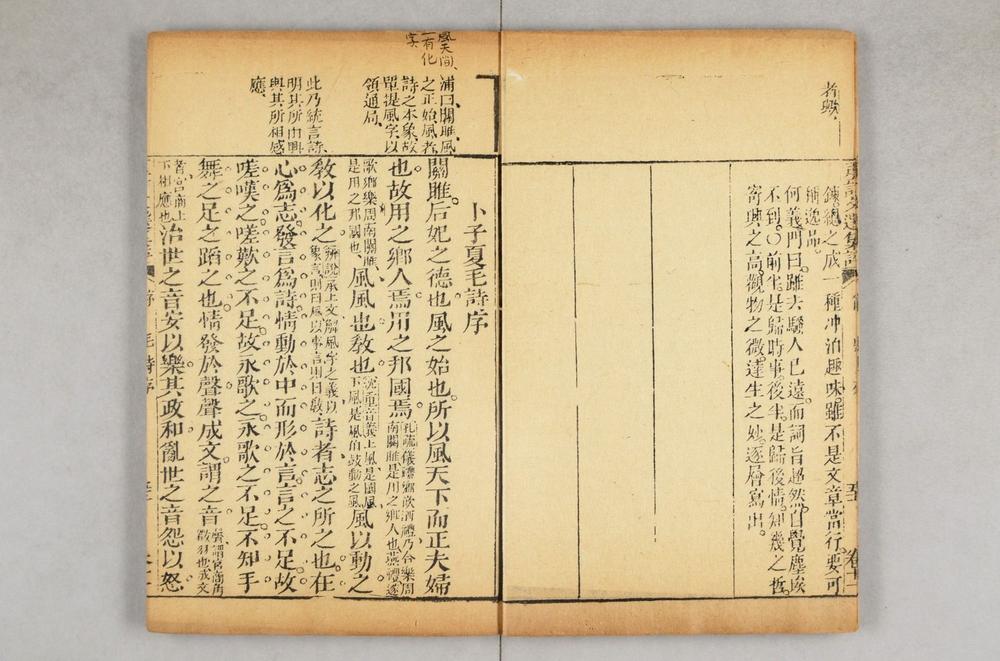 者與
鍊總之成一種冲泊趣味雖不是文章當行要可
稱逸品
何義門曰雖去騷人已遠而詞旨超然自覺塵埃
不到〇前半是歸時事後半是歸後情知幾之哲
寄興之高觀物之微達生之妙逐層寫出
風天間
一有化
字
浦口關雎風
之正始風者
詩之本象故
單提風字以
領通局
此乃統言詩
明其所由興
與其所相感
應
卜子夏毛詩序
關雎后妃之德也風之始也所以風天下而正夫婦
也故用之鄉人焉用之邦國焉
孔疏儀禮鄉飲酒禮乃合樂周
南關雎是用之鄉人也燕禮遂
歌鄉樂周南關雎
是用之邦國也
風風也教也
沈重音義上風是國風
下風是風伯鼓動之風
風以動之
教以化之
辨說承上文解風字之義以
象言則曰風以事言則曰教
詩者志之所之也在
心爲志發言爲詩情動於中而形於言言之不足故
嗟嘆之嗟歎之不足故永歌之永歌之不足不知手
舞之足之蹈之也情發於聲聲成文謂之音
聲謂宮商角
徵羽也成文
者宮商上
下相應也
治世之音安以樂其政和亂世之音怨以怒